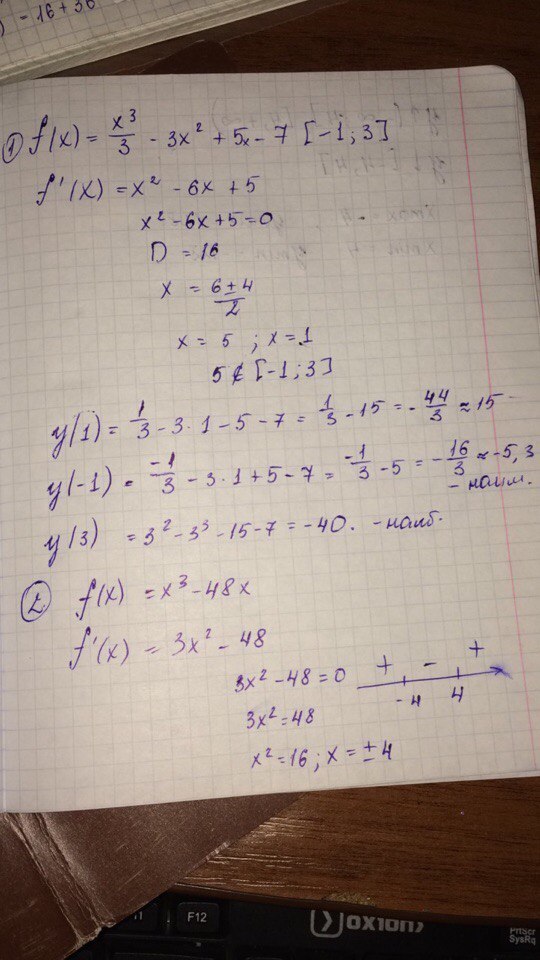 ) = 16 + 36
① f(x) = x³/3 - 3x² + 5x - 7 [-1; 3]
f'(x) = x² - 6x + 5
x² - 6x + 5 = 0
D = 16
x = (6 ± 4)/2
x = 5 ; x = 1
5 ∉ [-1; 3]
y(1) = 1/3 - 3·1 - 5 - 7 = 1/3 - 15 = -44/3 ≈ 15
y(-1) = -1/3 - 3·1 + 5 - 7 = -1/3 - 5 = -16/3 ≈ -5,3
- наим.
y(3) = 3² - 3³ - 15 - 7 = -40. - наиб.
② f(x) = x³ - 48x
f'(x) = 3x² - 48
3x² - 48 = 0
+ - +
-4 4
3x² = 48
x² = 16 ; x = ± 4
F12
oxion)
PrtScr
SysRq